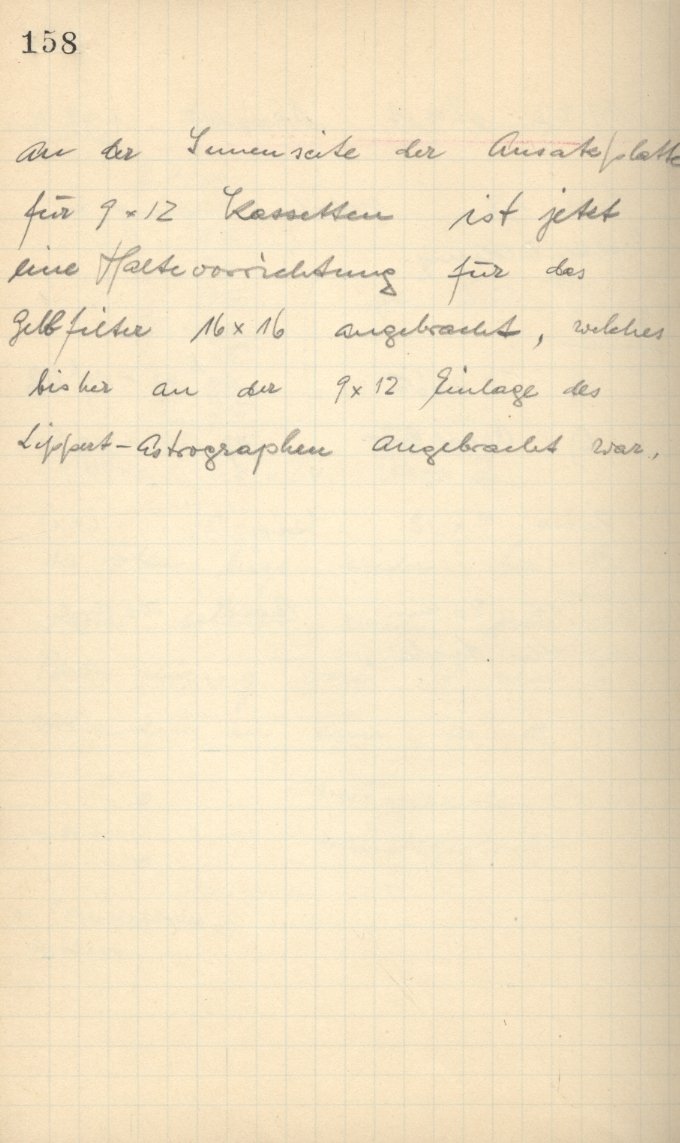 158
An der Innenseite der Ansatzplatte
für 9 x 12 Kassetten ist jetzt
eine Haltevorrichtung für das
Gelbfilter 16 x 16 angebracht, welches
bisher an der 9 x 12 Einlage des
Lippert-Astrographen angebracht war.